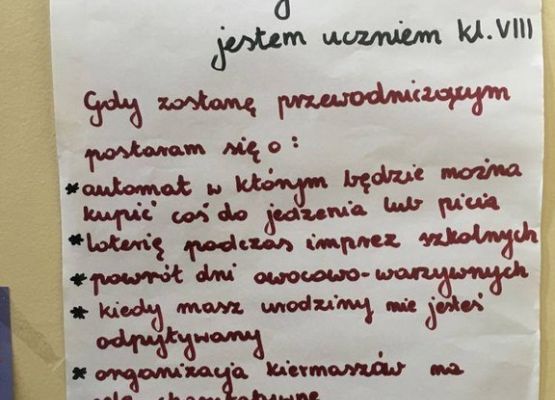 jestem uczniem kl. VIII
Gdy zostanę przewodniczącym
postaram się o:
* automat w którym będzie można
kupić coś do jedzenia lub picia
* loterię podczas imprez szkolnych
* powrót dni owocowo-warzywnych
* kiedy masz urodziny nie jesteś
odpytywany
* organizacja kiermaszów na